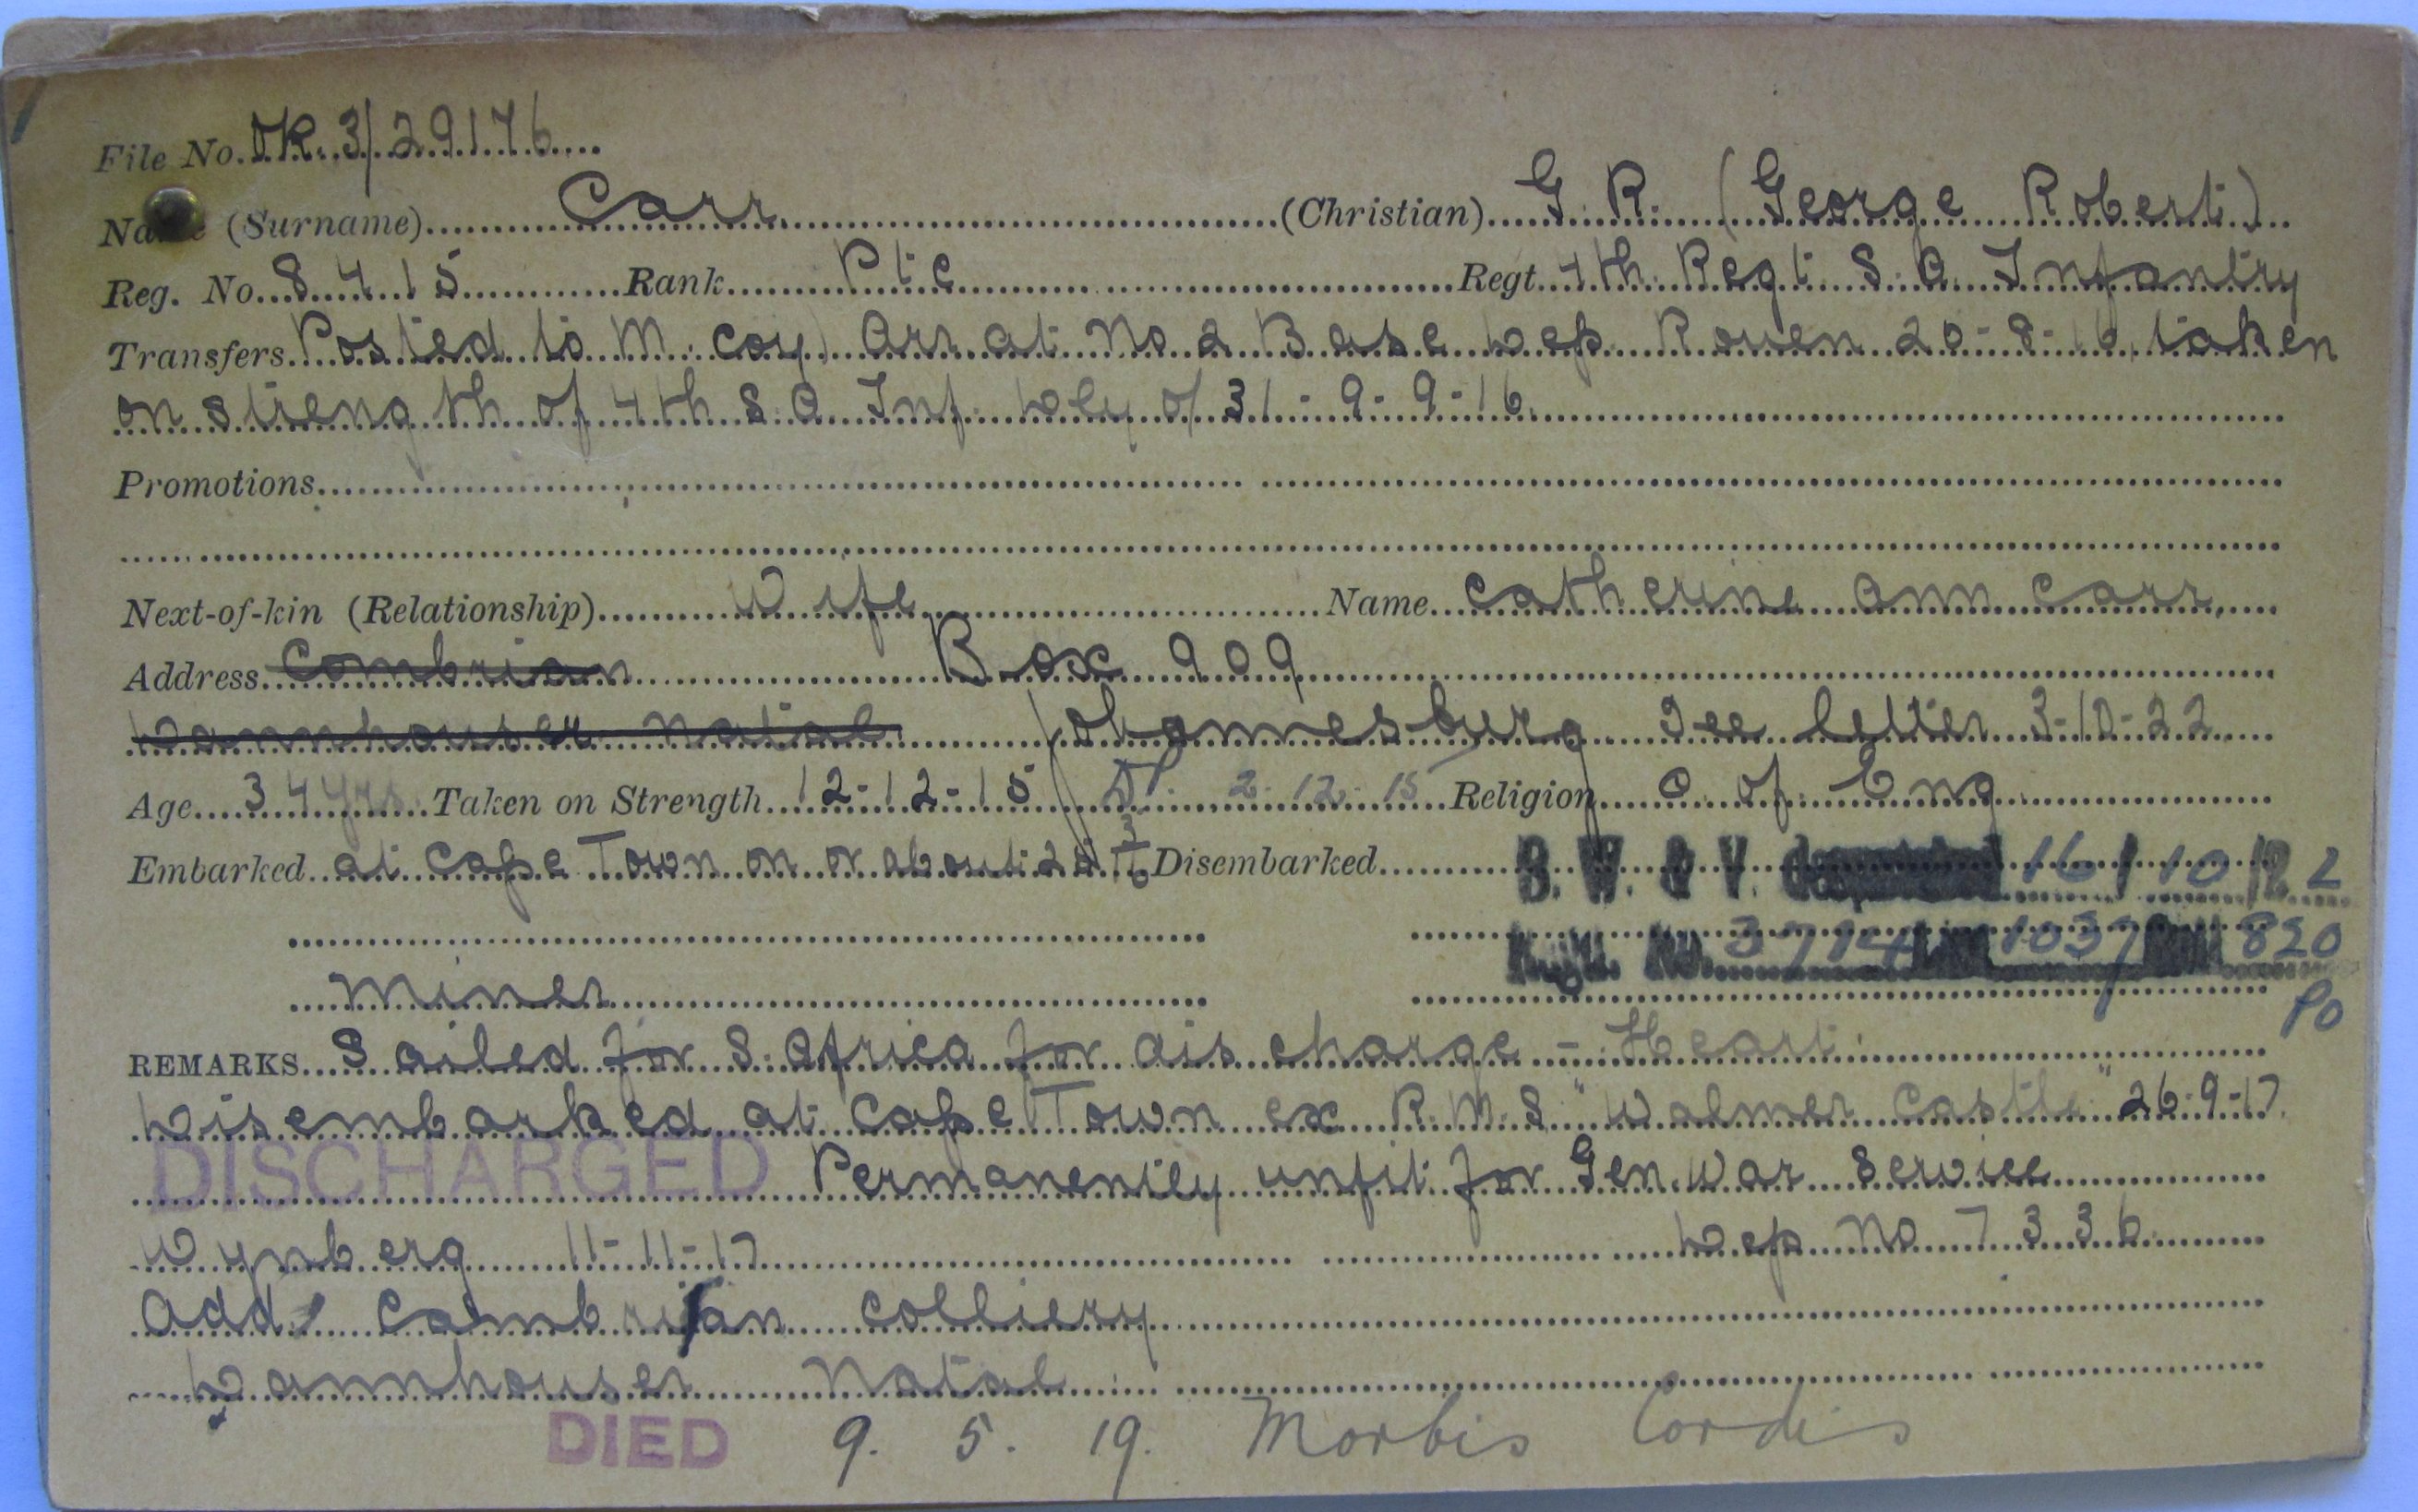 File No. DR. 3/29176
Name (Surname) Carr (Christian) G. R. (George Robert)
Reg. No. 8415 Rank Pte Regt. 4th Regt S. A. Infantry
Transfers Posted to M. Coy. Arr at No 2 Base Dep Rouen 20-8-16, taken
on strength of 4th S. A. Inf. of 31-9-9-16
Promotions
Next-of-kin (Relationship) Wife Name Catherine Ann Carr,
Address Cambrian Box 909
Dannhauser Natal Johannesburg See letter 3-10-22
Age 34 yrs. Taken on Strength 12-12-15 2-12-15 Religion C. of Eng
Embarked at Cape Town on or about Disembarked B. W. & V. despatched 16/10/22
No. 3774 1037 820
Miner
Po
REMARKS Sailed for S. Africa for discharge - Heart.
Disembarked at Cape Town ex R.M.S "Walmer Castle" 26-9-17.
DISCHARGED Permanently unfit for Gen. War Service
Wynberg 11-11-17 Dep No 7336
Add Cambrian Colliery
Dannhauser Natal
DIED 9. 5. 19. Morbis Cordis